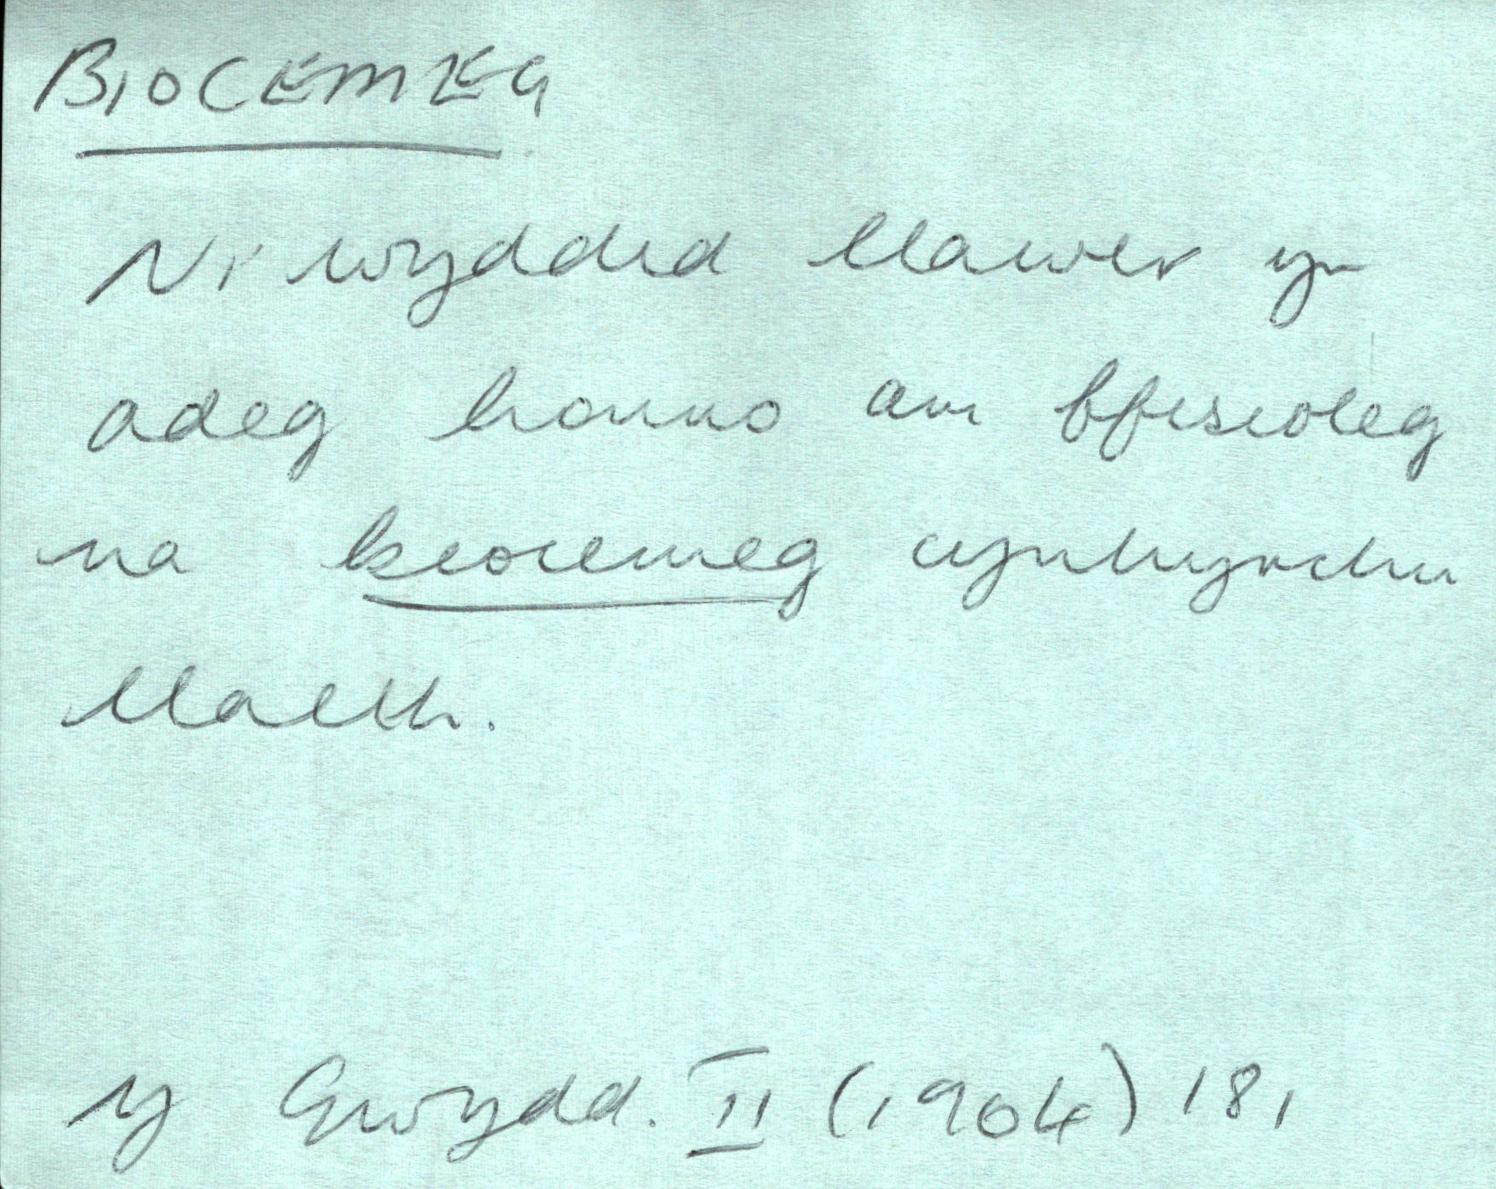 BIOCEMEG
Ni wydded llawer yr
adeg honno am ffisioleg
na biocemeg cynhyrchu
llaeth.
Y Gwydd. II (1904) 181